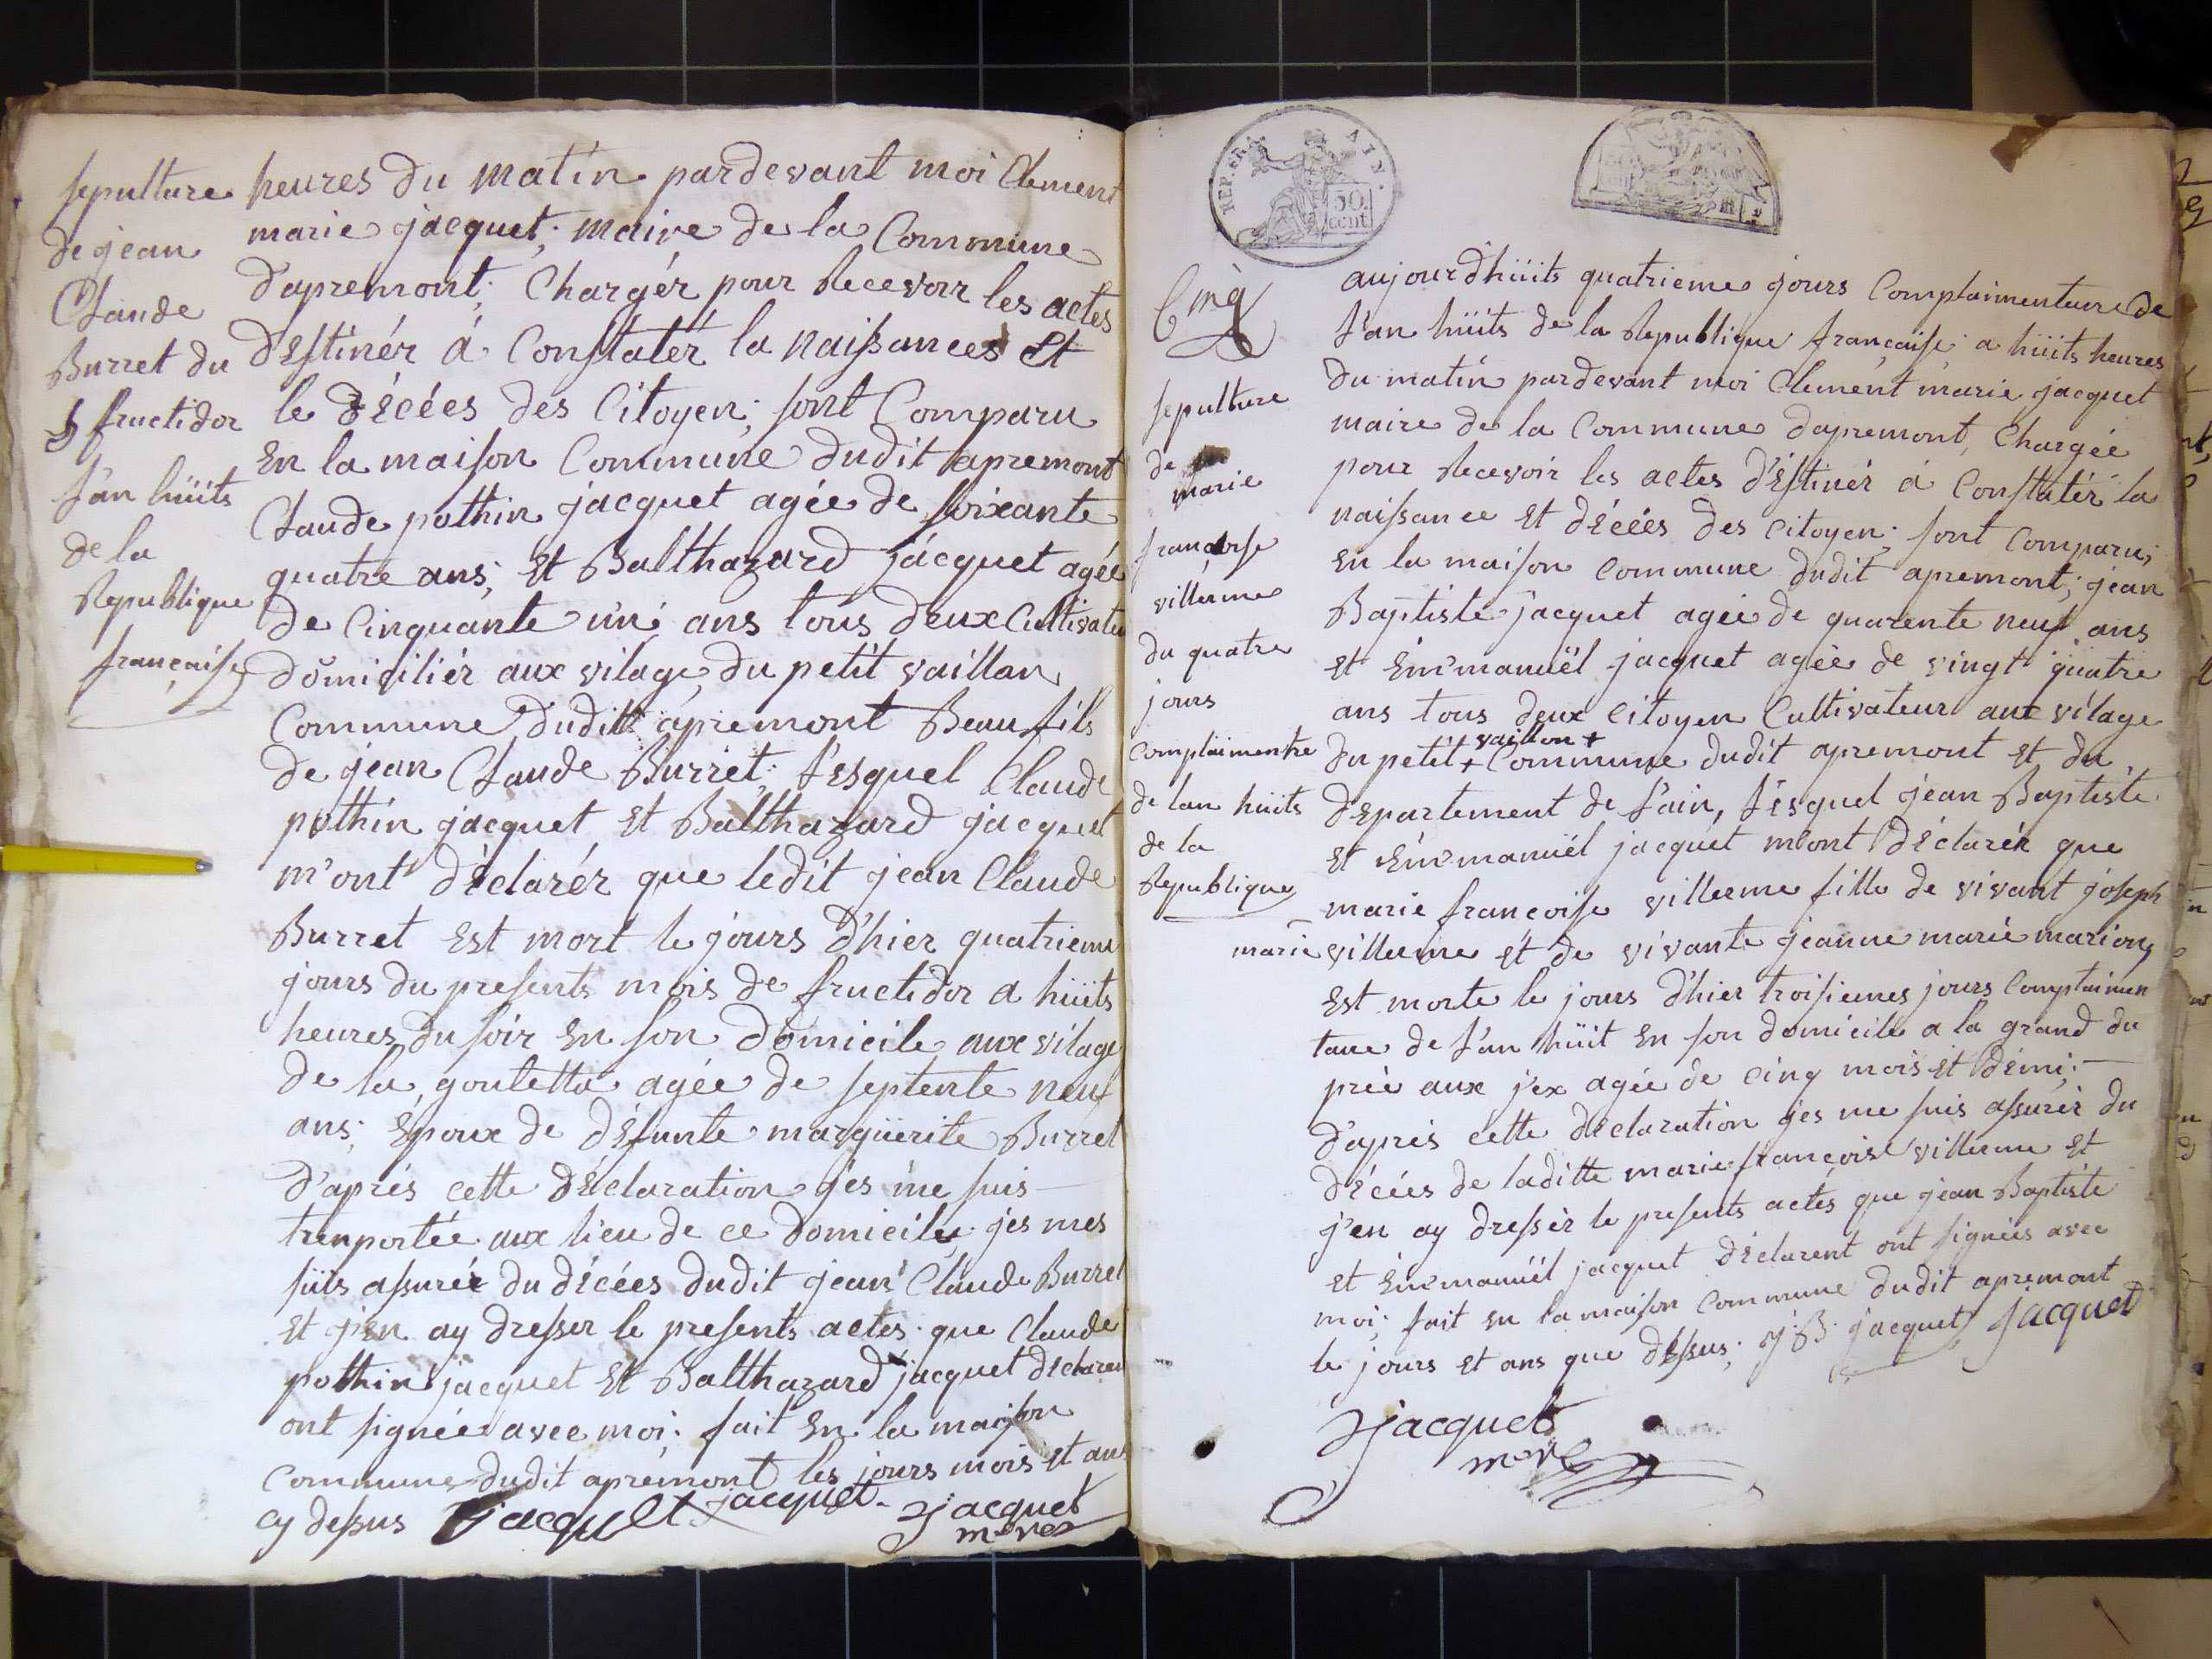 sepulture
de jean
Claude
Burret du
5 fructidor
l'an hüits
de la
Republique
francaise
heures du matin pardevant moi Clement
marie jacquet; maire de la Commune
d'apremont; Chargér pour Recevoir les actes
destinér á Constatér la naissances et
le décées des Citoyen; sont Comparu
En la maison Commune dudit apremont
Claude pothin jacquet agée de soixante
quatre ans; et Balthazard jacquet agée
de Cinquante un ans tous deux Cultivateu
domiciliér aux vilage du petit vaillon
Commune dudit apremont Beau fils
de jean Claude Burret; l'esquel Claude
pothin jacquet et Balthazard jacquet
m'ont déclarér que ledit jean Claude
Burret est mort le jours d'hier quatrieme
jours du presents mois de fructidor a hüits
heures du soir en son domicile aux vilage
de la goutetta agée de septente neuf
ans; Epoux de défunte margüerite Burret
d'aprés cette déclaration jes me suis
trenportée aux lieu de ce domicile jes mes
süis assurér du décées dudit jean Claude Burret
et j'en ay dresser le presents actes que Claude
pothin jacquet et Balthazard jacquet declaren
ont signée avec moi; fait en la maison
Commune dudit apremont les jours mois et ans
cy dessus jacquet jacquet jacquet
REP. FRA. AIN.
50.
cent
Cinq
sepulture
de
marie
francoise
villerme
du quatre
jours
complaimentre
de lan hüits
de la
Republique
aujourdhüits quatrieme jours Complaimentaire de
l'an hüits de la Republique francaise a hüits heures
du matin pardevant moi Clement marie jacquet
maire de la Commune dapremont, Chargée
pour Recevoir les actes déstinér á Constatér la
naissance et décées des Citoyen; sont Comparu;
en la maison Commune dudit apremont; jean
Baptiste jacquet agée de quarente neuf ans
et Emmanuël jacquet agée de vingt quatre
ans tous deux Citoyen Cultivateur aux vilage
vaillon +
du petit + Commune dudit apremont et du
departement de l'ain, l'ésquel jean Baptiste
et Emmanuël jacquet m'ont déclarér que
marie francoise villerme fille de vivant joseph
marie villerme et de vivante jeanne marie marion
est morte le jours d'hier troisiemes jours Complaimen
taire de l'an hüit en son domicile a la grand du
prée aux jex agée de cinq mois et démi;
d'aprés cette declaration jes me suis assurér du
décées de laditte marie francoise villerme et
j'en ay dressér le presents actes que jean Baptiste
et Emmanuël jacquet déclarent ont signées avec
moi; fait en la maison Commune dudit apremont
le jours et ans que dessus; j. B. jacquet jacquet
jacquet